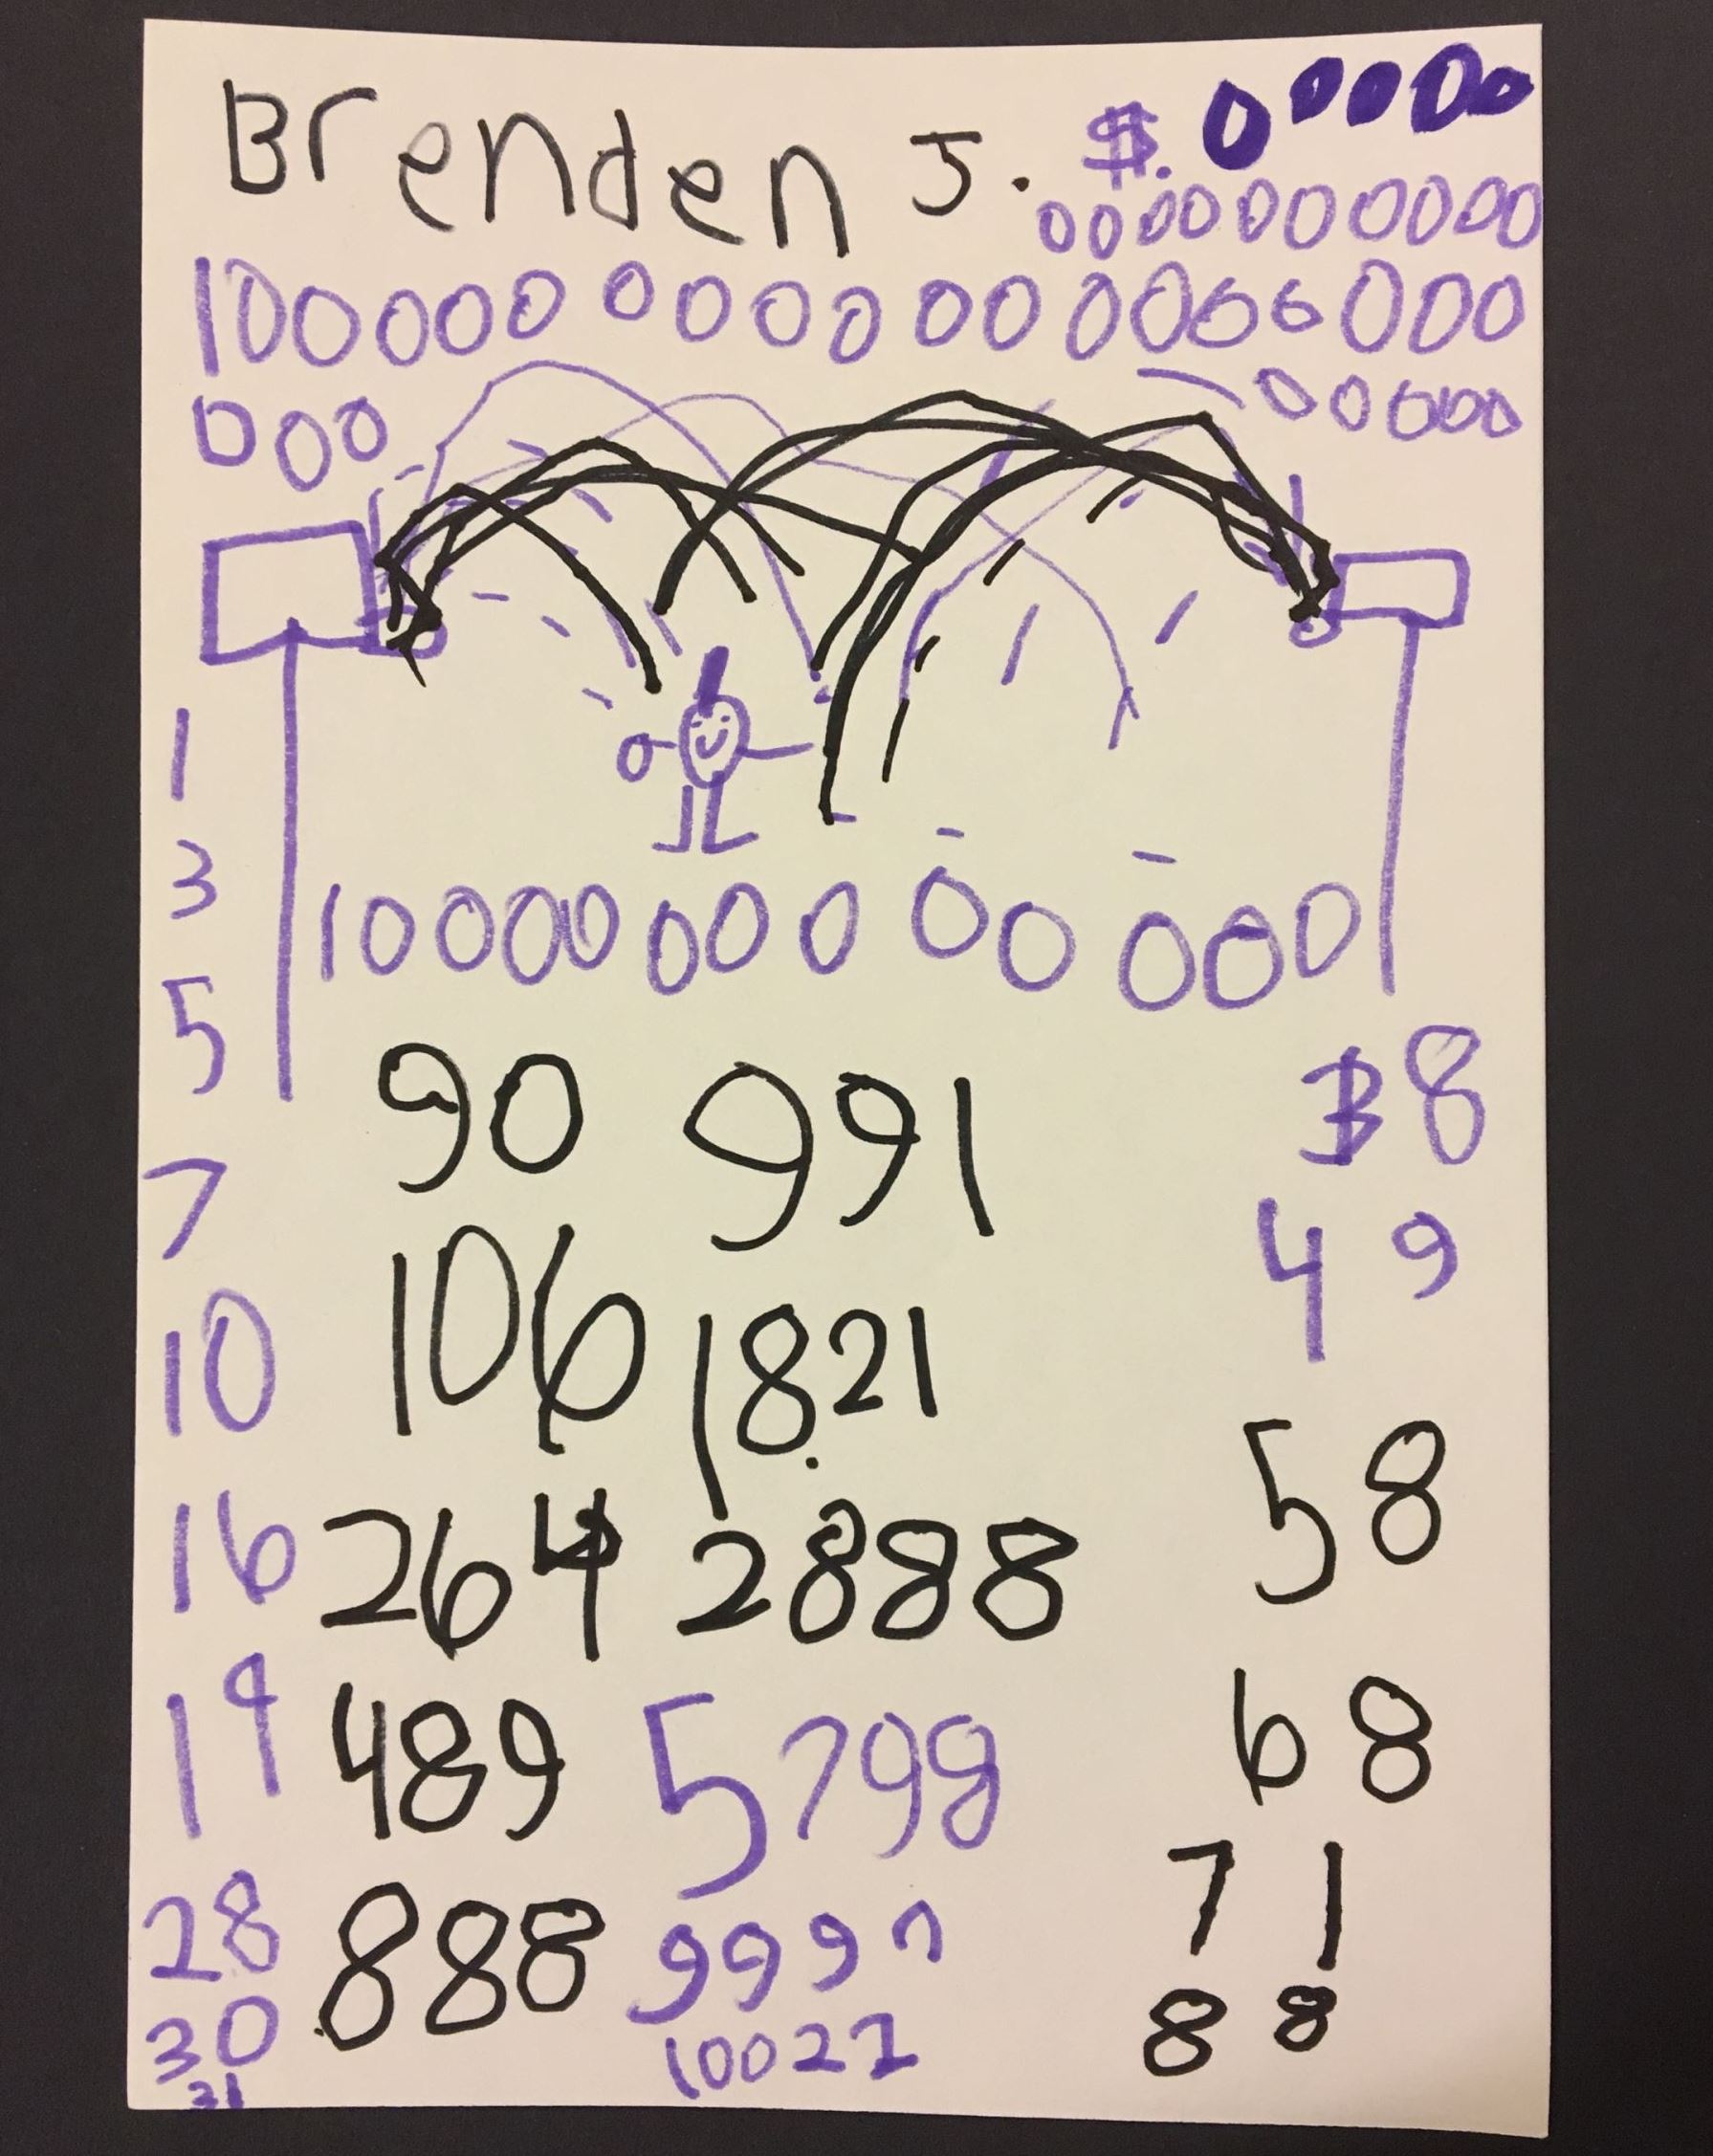 Brenden J. $.00000
00000000000
1000000000000066000
000 00000
1
3
10000000000000
5
90 991 38
7
106 1821 49
10
58
16 264 2888
19 489 5798 68
28 888 999 71
30 10021 88
31